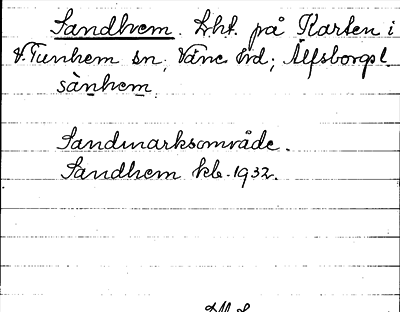 Sandhem. Lht. på Karten i
V. Tunhem sn; Väne hd; Älfsborgs l.
sànhem
Sandmarksområde.
Sandhem kb. 1932.